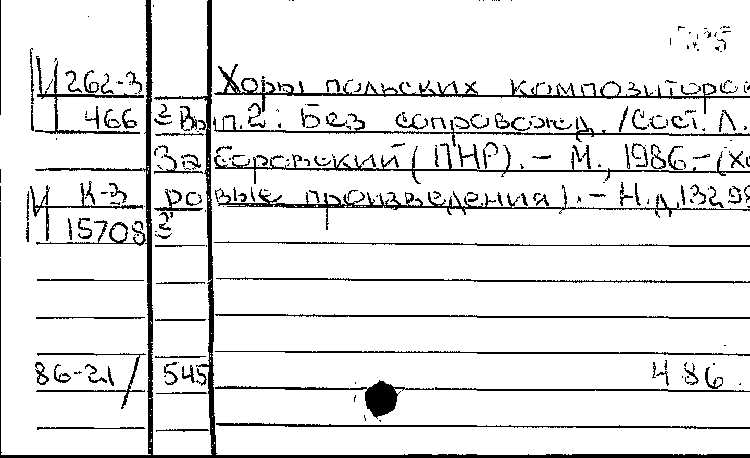 М 262-3 Хоры польских композиторов
466 3 Вып. 2: Без сопровожд. /Сост. Л.
Заборовский (ПНР). – М., 1986. – (хо
М К-3 ровые произведения). – Н.д. 13298
15708 3
86-21/ 545 486